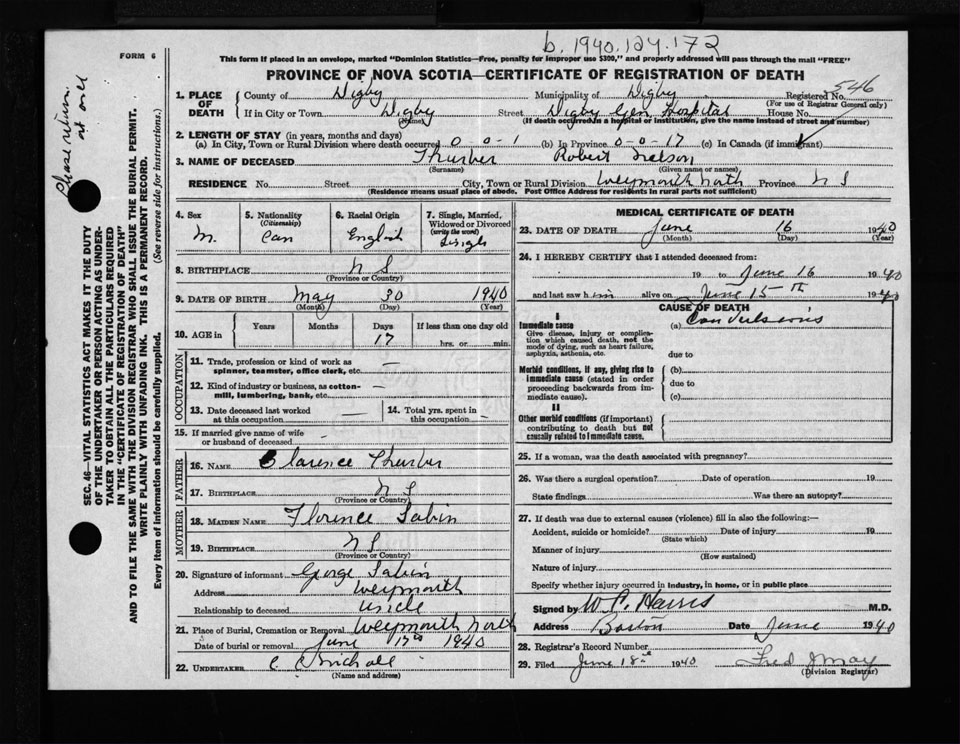 b. 1940.124.172
FORM 6
This form if placed in an envelope, marked "Dominion Statistics—Free, penalty for improper use $300," and properly addressed will pass through the mail "FREE"
PROVINCE OF NOVA SCOTIA—CERTIFICATE OF REGISTRATION OF DEATH
Please return at once
SEC. 46—VITAL STATISTICS ACT MAKES IT THE DUTY
OF THE UNDERTAKER OR PERSON ACTING AS UNDER-
TAKER TO OBTAIN ALL THE PARTICULARS REQUIRED
IN THE "CERTIFICATE OF REGISTRATION OF DEATH"
AND TO FILE THE SAME WITH THE DIVISION REGISTRAR WHO SHALL ISSUE THE BURIAL PERMIT.
WRITE PLAINLY WITH UNFADING INK. THIS IS A PERMANENT RECORD.
Every item of information should be carefully supplied. (See reverse side for instructions.)
1. PLACE OF DEATH
County of Digby Municipality of Digby Registered No. 546
(For use of Registrar General only)
If in City or Town Digby Street Digby Gen Hospital House No.
(Name) (If death occurred in a hospital or institution, give the name instead of street and number)
2. LENGTH OF STAY (in years, months and days)
(a) In City, Town or Rural Division where death occurred 0-0-1 (b) In Province 0-0-17 (c) In Canada (if immigrant)
3. NAME OF DECEASED Thurber Robert Nelson
(Surname) (Given name or names)
RESIDENCE No. Street City, Town or Rural Division Weymouth North Province N S
(Residence means usual place of abode. Post Office Address for residents in rural parts not sufficient)
4. Sex
M.
5. Nationality
(Citizenship)
Can
6. Racial Origin
English
7. Single, Married, Widowed or Divorced
(write the word)
Single
8. BIRTHPLACE N S
(Province or Country)
9. DATE OF BIRTH May 30 1940
(Month) (Day) (Year)
10. AGE in
Years Months Days If less than one day old
17 hrs. or min.
OCCUPATION
11. Trade, profession or kind of work as
spinner, teamster, office clerk, etc. —
12. Kind of industry or business, as cotton-
mill, lumbering, bank, etc. —
13. Date deceased last worked
at this occupation —
14. Total yrs. spent in
this occupation —
15. If married give name of wife
or husband of deceased -
FATHER
16. NAME Clarence Thurber
17. BIRTHPLACE N S
(Province or Country)
MOTHER
18. MAIDEN NAME Florence Sabin
19. BIRTHPLACE N S
(Province or Country)
20. Signature of informant George Sabin
Address Weymouth
Relationship to deceased Uncle
21. Place of Burial, Cremation or Removal Weymouth North
Date of burial or removal June 17th 1940
22. UNDERTAKER
(Name and address)
MEDICAL CERTIFICATE OF DEATH
23. DATE OF DEATH June 16 1940
(Month) (Day) (Year)
24. I HEREBY CERTIFY that I attended deceased from:
19 to June 16 1940
and last saw him alive on June 15th 1940
CAUSE OF DEATH
I
Immediate cause
Give disease, injury or complica-
tion which caused death, not the
mode of dying, such as heart failure,
asphyxia, asthenia, etc.
(a) Convulsions
due to
Morbid conditions, if any, giving rise to
immediate cause (stated in order
proceeding backwards from im-
mediate cause).
(b)
due to
(c)
II
Other morbid conditions (if important)
contributing to death but not
causally related to immediate cause.
25. If a woman, was the death associated with pregnancy?
26. Was there a surgical operation? Date of operation 19
State findings Was there an autopsy?
27. If death was due to external causes (violence) fill in also the following:—
Accident, suicide or homicide? Date of injury 19
(State which)
Manner of injury
(How sustained)
Nature of injury
Specify whether injury occurred in industry, in home, or in public place
Signed by Harris M.D.
Address Date June 1940
28. Registrar's Record Number
29. Filed June 18th 1940 Fred J May
(Division Registrar)